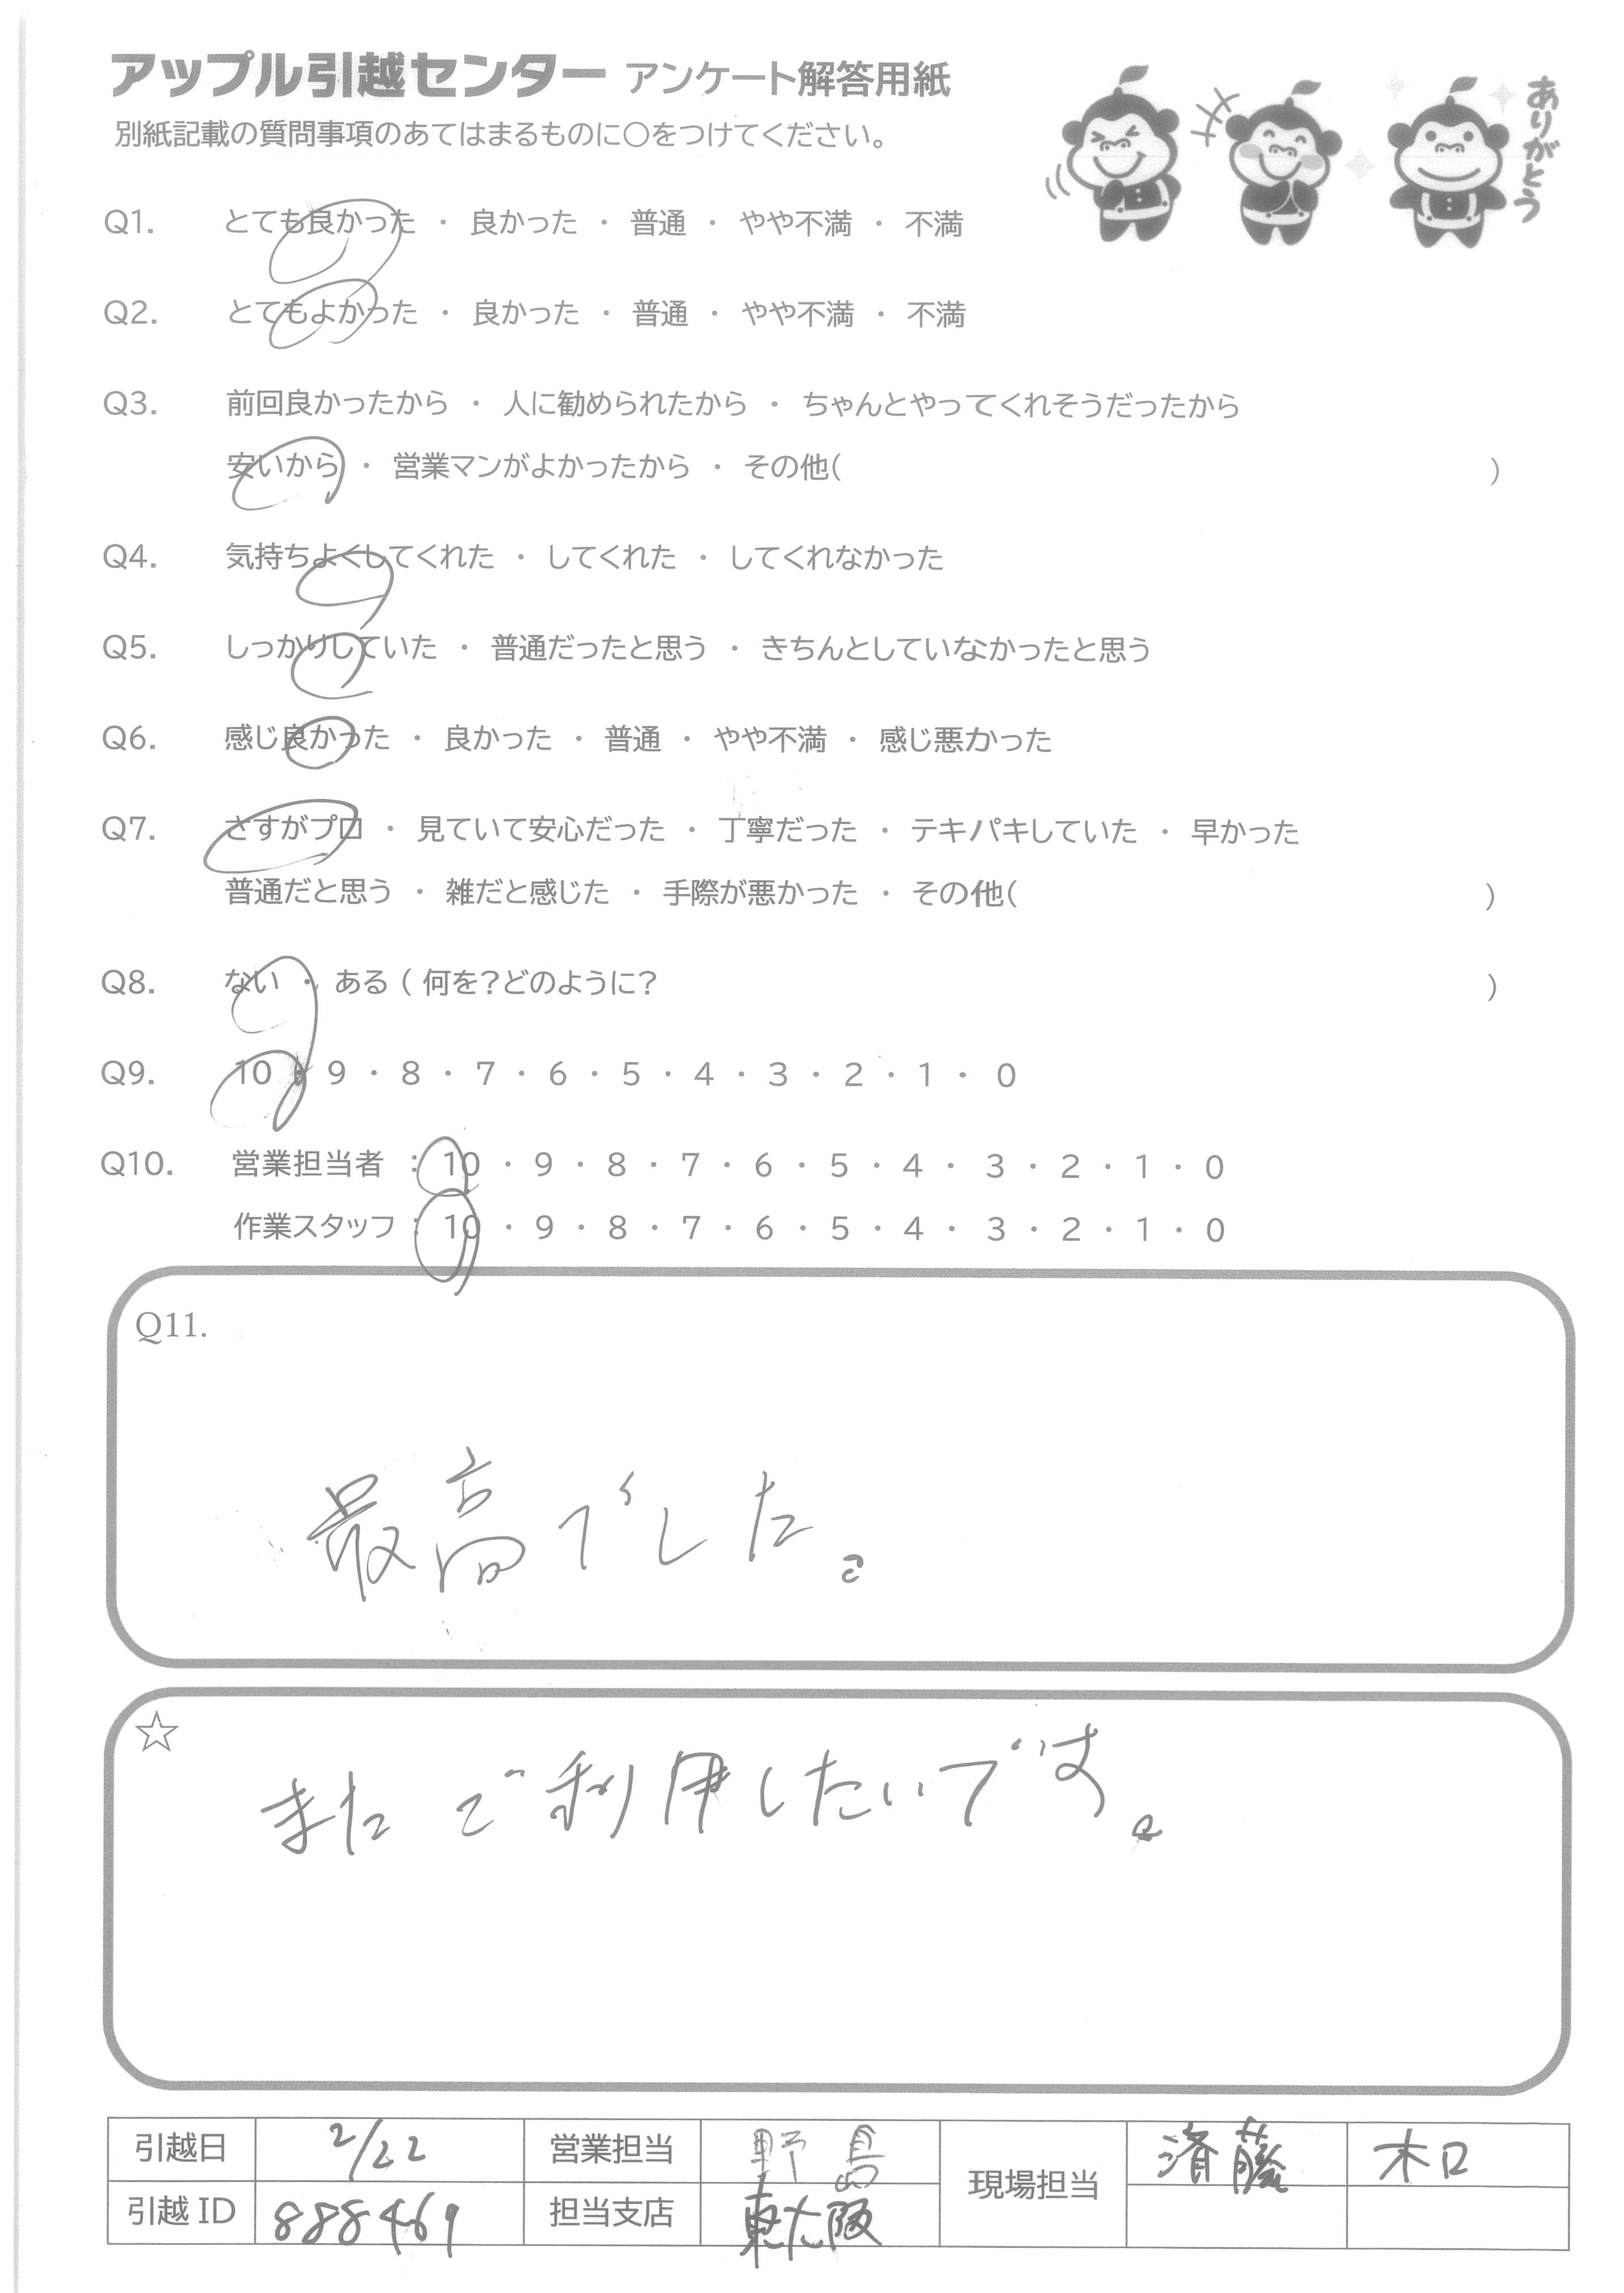 アップル引越センター アンケート解答用紙
別紙記載の質問事項のあてはまるものに○をつけてください。
ありがとう
Q1. とても良かった ・ 良かった ・ 普通 ・ やや不満 ・ 不満
Q2. とてもよかった ・ 良かった ・ 普通 ・ やや不満 ・ 不満
Q3. 前回良かったから ・ 人に勧められたから ・ ちゃんとやってくれそうだったから
安いから ・ 営業マンがよかったから ・ その他( )
Q4. 気持ちよくしてくれた ・ してくれた ・ してくれなかった
Q5. しっかりしていた ・ 普通だったと思う ・ きちんとしていなかったと思う
Q6. 感じ良かった ・ 良かった ・ 普通 ・ やや不満 ・ 感じ悪かった
Q7. さすがプロ ・ 見ていて安心だった ・ 丁寧だった ・ テキパキしていた ・ 早かった
普通だと思う ・ 雑だと感じた ・ 手際が悪かった ・ その他( )
Q8. ない ・ ある ( 何を?どのように? )
Q9. 10 ・ 9 ・ 8 ・ 7 ・ 6 ・ 5 ・ 4 ・ 3 ・ 2 ・ 1 ・ 0
Q10. 営業担当者 : 10 ・ 9 ・ 8 ・ 7 ・ 6 ・ 5 ・ 4 ・ 3 ・ 2 ・ 1 ・ 0
作業スタッフ : 10 ・ 9 ・ 8 ・ 7 ・ 6 ・ 5 ・ 4 ・ 3 ・ 2 ・ 1 ・ 0
Q11.
最高でした。
☆
またご利用したいです。
引越日 2/22 営業担当 野島 現場担当 済藤 木口
引越ID 888469 担当支店 東大阪